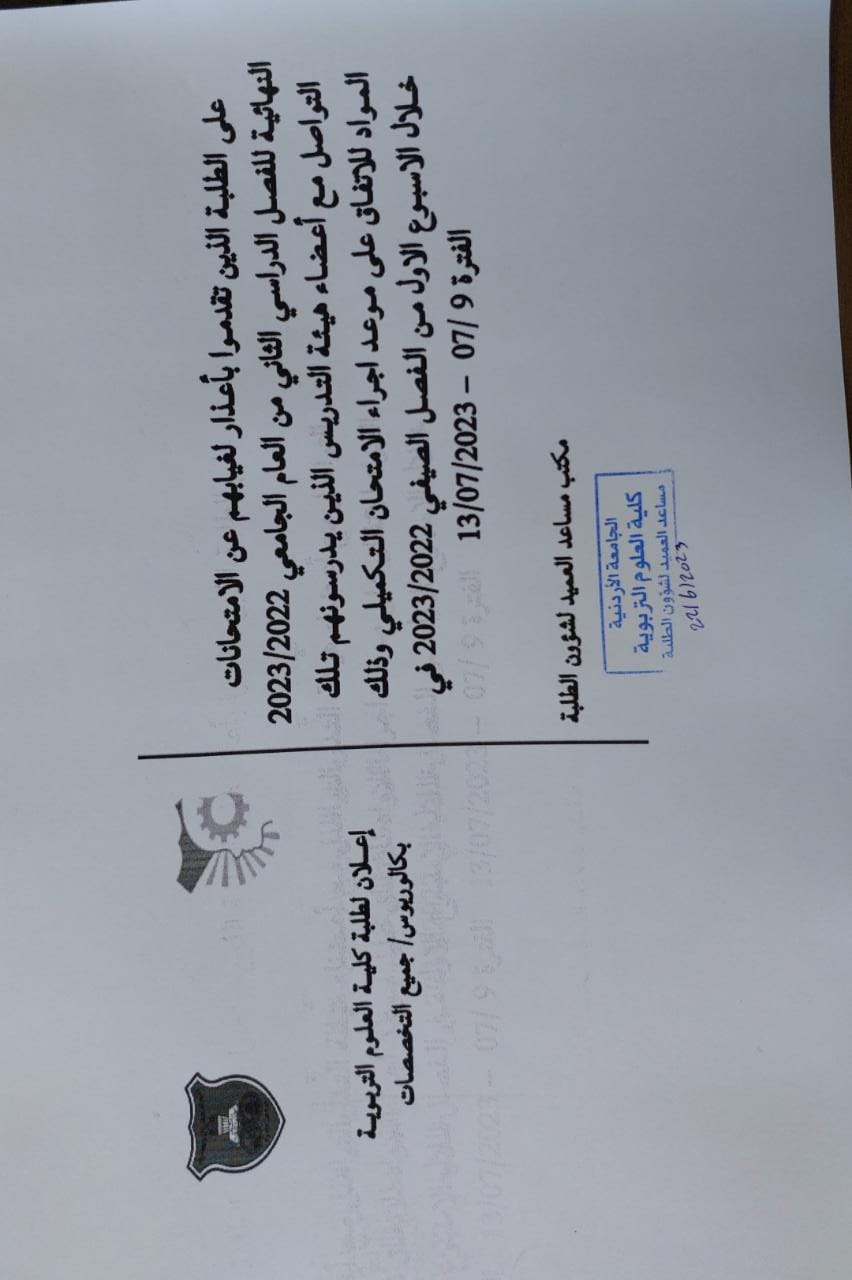 إعلان لطلبة كلية العلوم التربوية
بكالوريوس/ جميع التخصصات
على الطلبة الذين تقدموا بأعذار لغيابهم عن الامتحانات
النهائية للفصل الدراسي الثاني من العام الجامعي 2023/2022
التواصل مع أعضاء هيئة التدريس الذين يدرسونهم تلك
المواد للاتفاق على موعد اجراء الامتحان التكميلي وذلك
خلال الاسبوع الاول من الفصل الصيفي 2023/2022 في
الفترة 9 /07 – 13/07/2023
مكتب مساعد العميد لشؤون الطلبة
الجامعة الأردنية
كلية العلوم التربوية
مساعد العميد لشؤون الطلبة